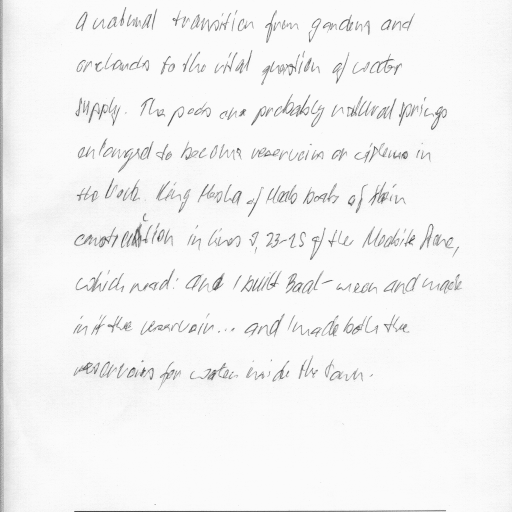 a natural transition from gardens and
orchards to the vital question of water
supply. The pools are probably natural springs
enlarged to become reservoirs or cisterns in
the rock. King Mesha of Moab boasts of their
construction in lines 9, 23-25 of the Moabite Stone,
which read: and I built Baal-meon and made
in it the reservoir... and I made both the
reservoirs for water inside the town.